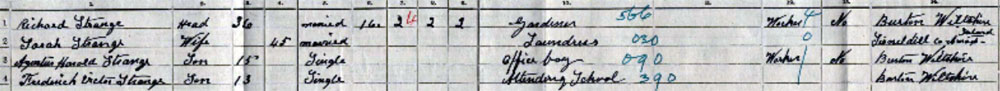 1 Richard Strange Head 36 married 16 2 4 2 2 Gardener 566 Worker 4 No Burton Wiltshire
2 Sarah Strange Wife 45 married Laundress 030 0 co Ireland
3 Harold Strange Son 15 Single Office boy 090 Worker No Burton Wiltshire
4 Frederick Victor Strange Son 13 Single Attending School 390 Burton Wiltshire